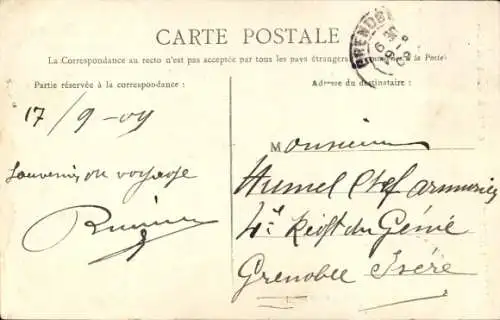 CARTE POSTALE
La Correspondance au recto n'est pas acceptée par tous les pays étrangers à la Poste
Partie réservée à la correspondance :
Adresse du destinataire :
17/9-09
Souvenir du voyage
Monsieur
Humel Chef armurier
4e Regt du Génie
Grenoble Isère